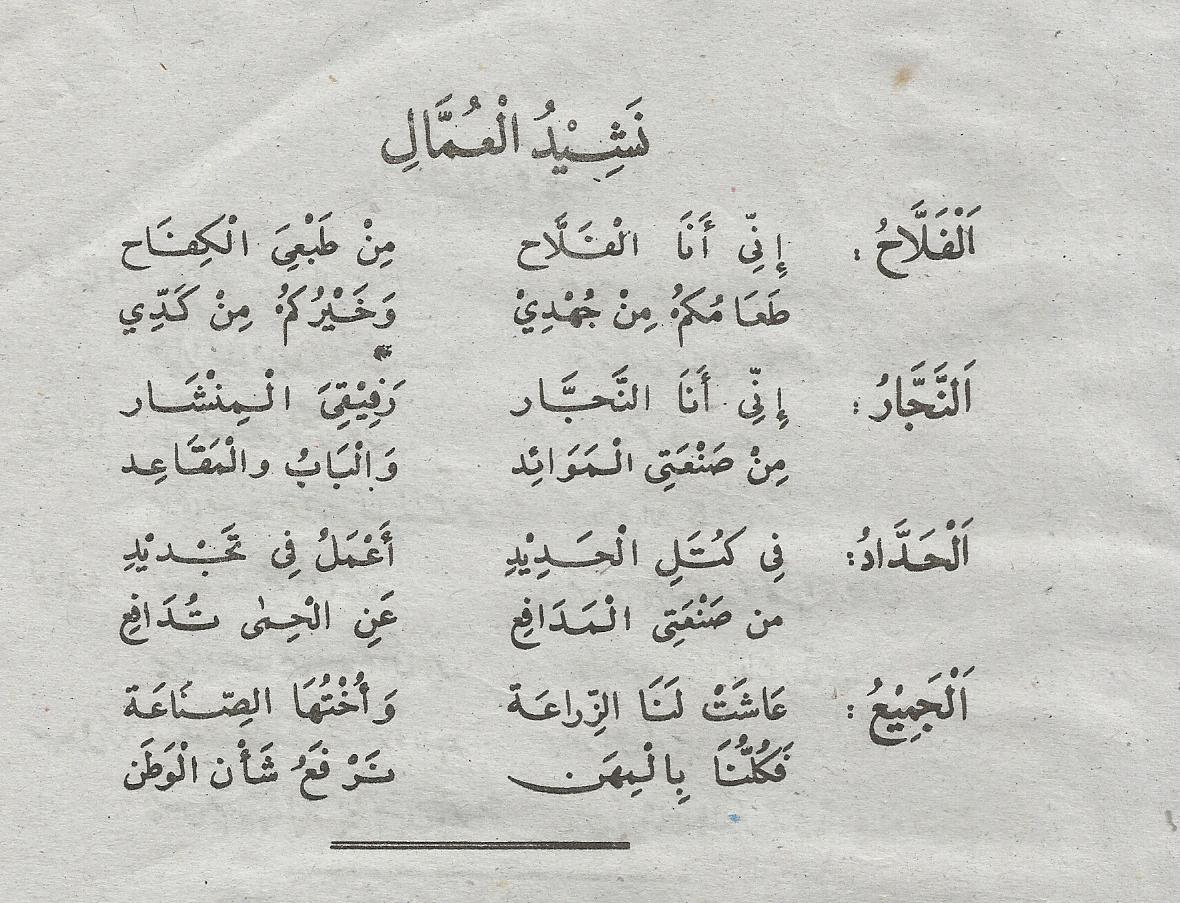 نَشِيْدُ الْعُمَّالِ
اَلْفَلَّاحُ : إِنِّي أَنَا الْفَلَّاح مِنْ طَبْعِيَ الْكِفَاح
طَعَامُكُمُ مِنْ جُهْدِيْ وَخَيْرُكُمُ مِنْ كَدِّي
اَلنَّجَّارُ : إِنِّي أَنَا النَّجَّار رَفِيْقِيَ الْمِنْشَار
مِنْ صَنْعَتِي الْمَوَائِد وَالْبَابُ والْمَقَاعِد
اَلْحَدَّادُ : فِي كُتَلِ الْحَدِيْدِ أَعْمَلُ فِي تَجْدِيْدِ
من صَنْعَتِي الْمَدَافِعِ عَنِ الْحِمٰى تُدَافِعِ
اَلْجَمِيْعُ : عَاشَتْ لَنَا الزِّراعَة وَأُخْتُهَا الصِّنَاعَة
فَكُلُّنَا بِالْمِهَن نَرْفَعُ شَأْن الْوَطَن